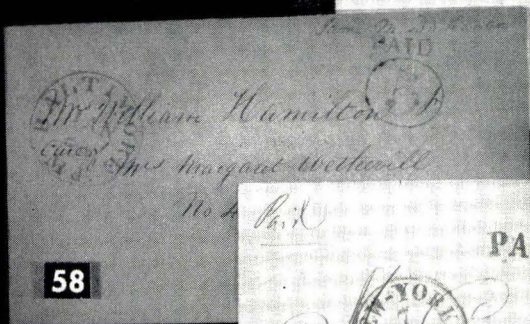 PAID
BALTIMORE
Mr William Hamilton
care of
Mrs Margaret Wetherill
No 4
58
Paid
PA
NEW-YORK
7